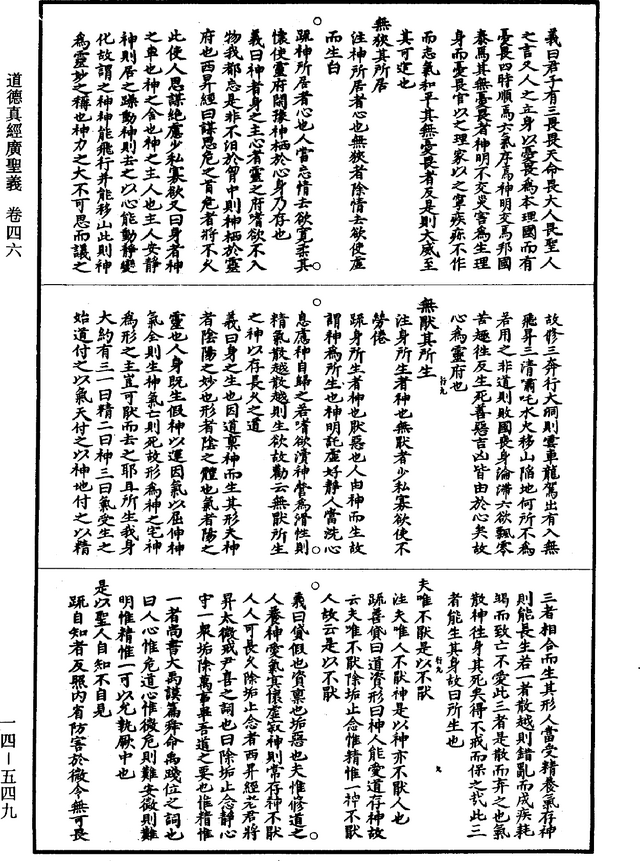 道德真經廣聖義 卷四六
一四—五四九
義曰君子有三畏畏天命畏大人畏聖人
之言又人之立身以憂畏為本理國而有
憂畏四時順焉六氣序焉神明交焉邦國
泰焉其無憂畏者神明不交災害為生理
身而憂畏官以之理家以之寧疾疹不作
而志氣和平其無憂畏者反是則大威至
其可逭也
無狹其所居
注神所居者心也無狹者除情去欲使虛
而生白
疏神所居者心也人當忘情去欲寬柔其
懷使靈府閑豫神栖於心身乃存也
義曰神者身之主心者靈之府嗜欲不入
物我都忘是非不汨於胷中則神栖於靈
府也西昇經曰謀思危之首危者將不久
此使人思謀絕慮少私寡欲又曰身者神
之車也神之舍也神之主人也主人安靜
神則居之躁動神則去之以心能動靜變
化故謂之神神能飛行并能移山此則神
為靈妙之稱也神力之大不可思而議之
故修三奔行大洞則雲車龍駕出有入無
飛昇三清嘯吒水火移山陷地何所不為
若用之非道則敗國喪身淪滯六欲飄零
苦趣往反生死善惡吉凶皆由於心矣故
心為靈府也
無猒其所生
注身所生者神也無猒者少私寡欲使不
勞倦
疏身所生者神也猒惡也人由神而生故
謂神為所生也神明託虛好靜人當洗心
息慮神自歸之若嗜欲瀆神營為滑性則
精氣散越散越則生欲故勸云無猒所生
之神以存長久之道
義曰身之生也因道稟神而生其形夫神
者陰陽之妙也形者陰之體也氣者陽之
靈也人身既生假神以運因氣以屈伸神
氣全則生神氣亡則死故形為神之宅神
為形之主豈可猒而去之耶且所生我身
大約有三一曰精二曰神三曰氣受生之
始道付之以氣天付之以神地付之以精
三者相合而生其形人當受精養氣存神
則能長生若一者散越則錯亂而成疾耗
竭而致亡不愛此三者是散而弃之也氣
散神往身其死矣得不戒而保之哉此三
者能生其身故曰所生也
夫唯不猒是以不猒
注夫唯人不猒神是以神亦不猒人也
疏善貸曰道資形曰神人能愛道存神故
云夫唯不猒除垢止念惟精惟一神不猒
人故云是以不猒
義曰貸假也資稟也垢惡也夫惟修道之
人養神愛氣寞懷虛寂神則常存神不猒
人人可長久除垢止念者西昇經老君將
昇太微戒尹喜之詞也曰除垢止念靜心
守一衆垢除萬事畢吾道之要也惟精惟
一者尚書大禹謨篇舜命禹踐位之詞也
曰人心惟危道心惟微危則難安微則難
明惟精惟一可以允執厥中也
是以聖人自知不自見
疏自知者反照內省防害於微令無可畏